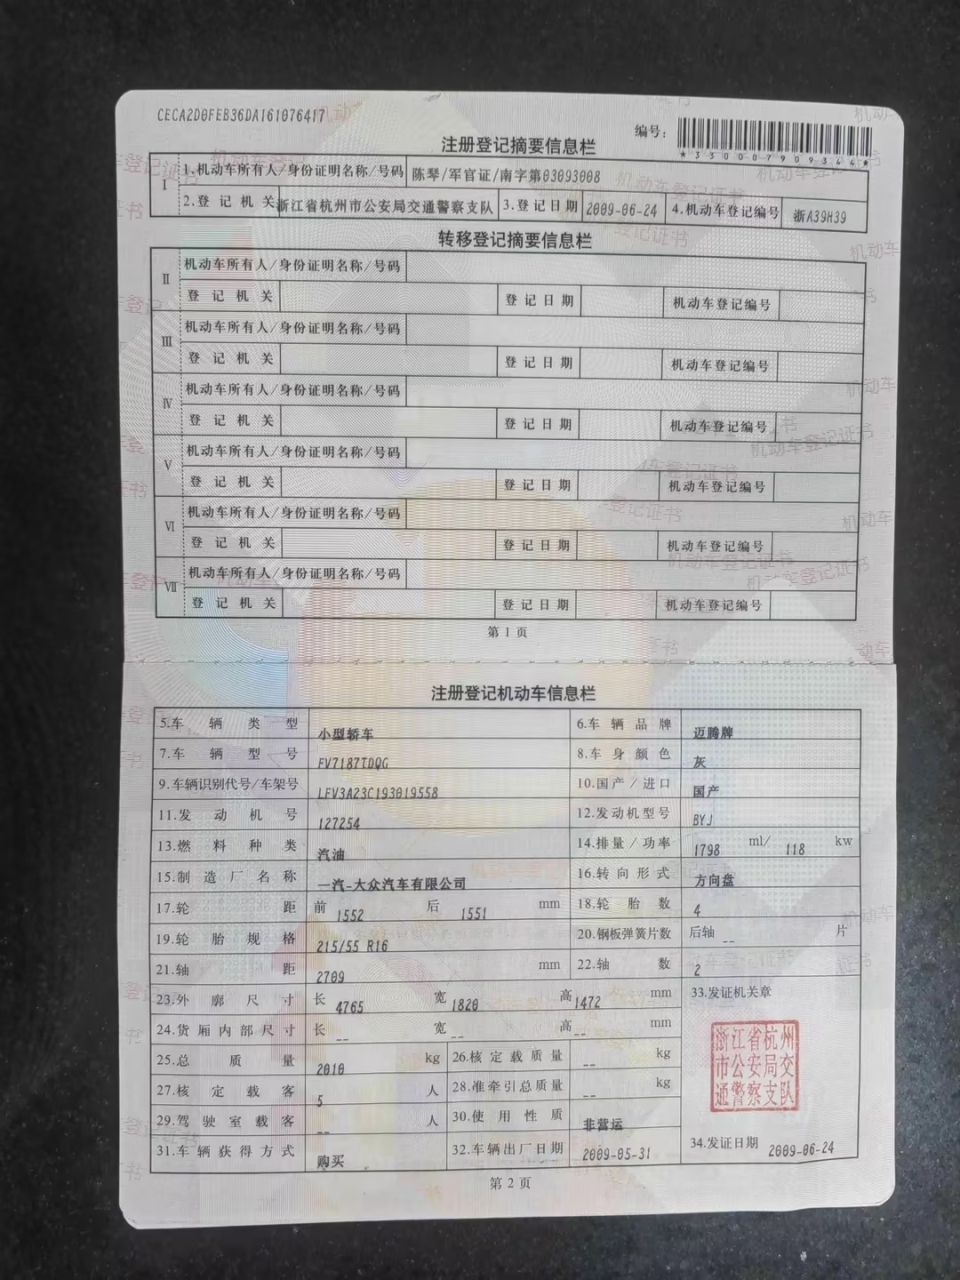 CECA2D0FEB36DA161076417
编号:
*330007909344*
注册登记摘要信息栏
I 1.机动车所有人/身份证明名称/号码 陈琴/军官证/南字第03093008
2.登记机关 浙江省杭州市公安局交通警察支队 3.登记日期 2009-06-24 4.机动车登记编号 浙A39H39
转移登记摘要信息栏
II 机动车所有人/身份证明名称/号码
登记机关 登记日期 机动车登记编号
III 机动车所有人/身份证明名称/号码
登记机关 登记日期 机动车登记编号
IV 机动车所有人/身份证明名称/号码
登记机关 登记日期 机动车登记编号
V 机动车所有人/身份证明名称/号码
登记机关 登记日期 机动车登记编号
VI 机动车所有人/身份证明名称/号码
登记机关 登记日期 机动车登记编号
VII 机动车所有人/身份证明名称/号码
登记机关 登记日期 机动车登记编号
第1页
注册登记机动车信息栏
5.车辆类型 小型轿车 6.车辆品牌 迈腾牌
7.车辆型号 FV7187TDQG 8.车身颜色 灰
9.车辆识别代号/车架号 LFV3A23C193019558 10.国产/进口 国产
11.发动机号 127254 12.发动机型号 BYJ
13.燃料种类 汽油 14.排量/功率 1798 ml/ 118 kw
15.制造厂名称 一汽-大众汽车有限公司 16.转向形式 方向盘
17.轮距 前 1552 后 1551 mm 18.轮胎数 4
19.轮胎规格 215/55 R16 20.钢板弹簧片数 后轴 -- 片
21.轴距 2709 mm 22.轴数 2
23.外廓尺寸 长 4765 宽 1820 高 1472 mm 33.发证机关章
24.货厢内部尺寸 长 -- 宽 -- 高 -- mm
25.总质量 2010 kg 26.核定载质量 -- kg
27.核定载客 5 人 28.准牵引总质量 -- kg
29.驾驶室载客 -- 人 30.使用性质 非营运
31.车辆获得方式 购买 32.车辆出厂日期 2009-05-31 34.发证日期 2009-06-24
浙江省杭州
市公安局交
通警察支队
第2页